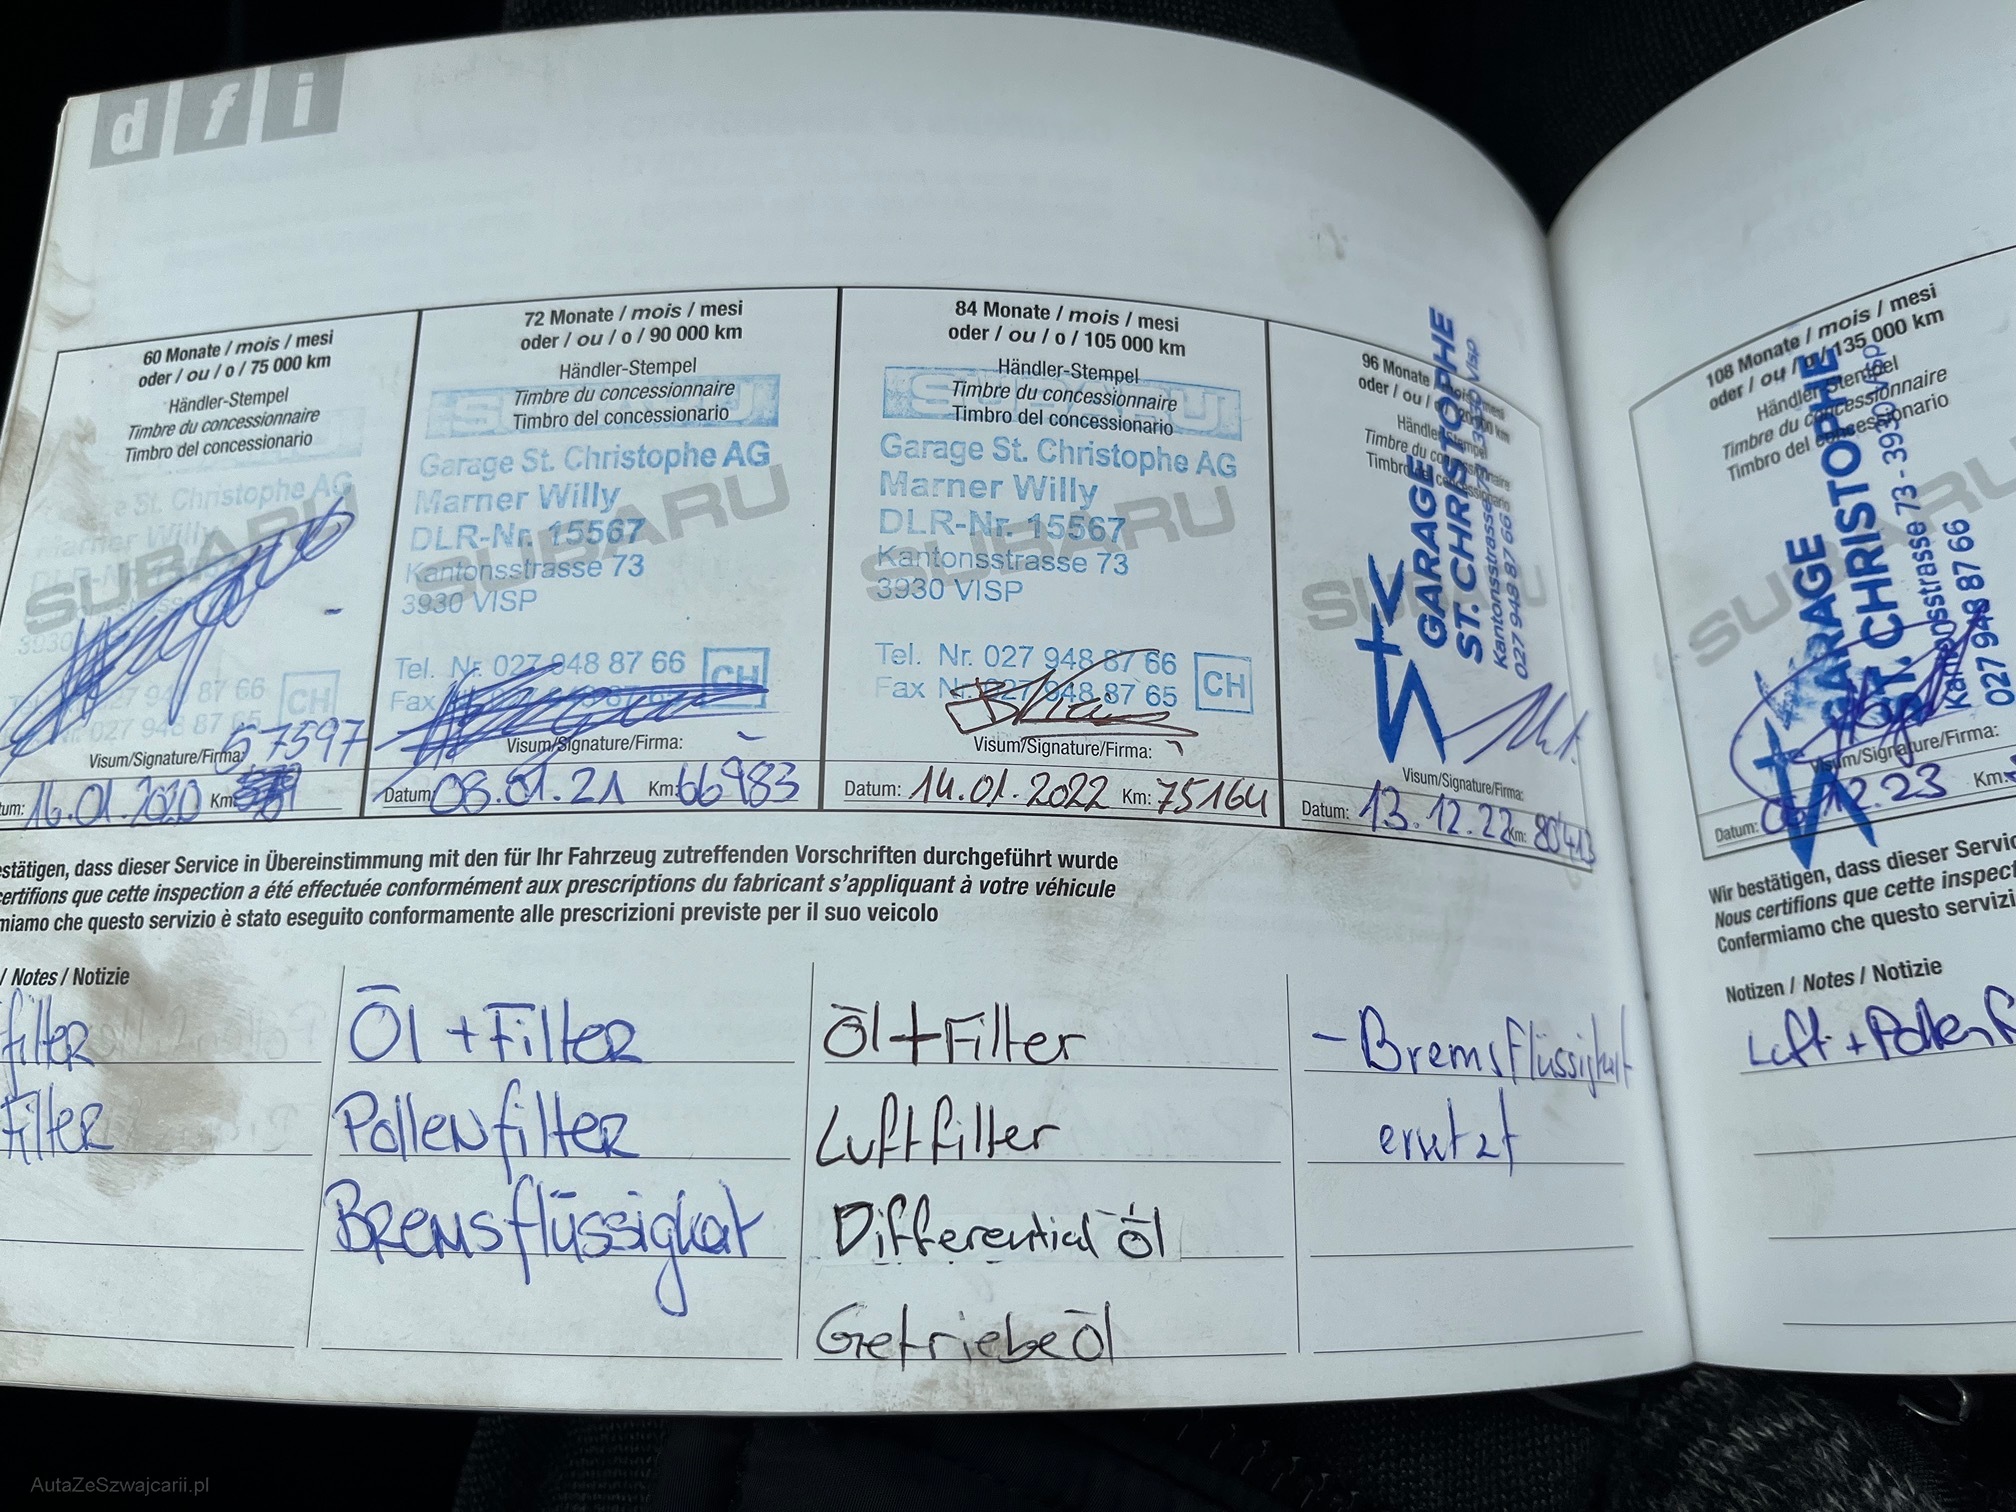 d f i
60 Monate / mois / mesi
oder / ou / o / 75 000 km
Händler-Stempel
Timbre du concessionnaire
Timbro del concessionario
e St. Christophe AG
Marner Willy
SUBARU
87 66
CH
027 948 87 65
57597
Visum/Signature/Firma:
tum: 16.01.2020 Km:
72 Monate / mois / mesi
oder / ou / o / 90 000 km
Händler-Stempel
Timbre du concessionnaire
Timbro del concessionario
SUBARU
Garage St. Christophe AG
Marner Willy
DLR-Nr. 15567
SUBARU
Kantonsstrasse 73
3930 VISP
Tel. Nr. 027 948 88 66
CH
Fax
Visum/Signature/Firma:
Datum: 08.01.21 Km: 66983
84 Monate / mois / mesi
oder / ou / o / 105 000 km
Händler-Stempel
Timbre du concessionnaire
Timbro del concessionario
SUBARU
Garage St. Christophe AG
Marner Willy
DLR-Nr. 15567
SUBARU
Kantonsstrasse 73
3930 VISP
Tel. Nr. 027 948 87 66
CH
Fax Nr. 027 948 87 65
Visum/Signature/Firma:
Datum: 14.01.2022 Km: 75164
96 Monate / mois / mesi
oder / ou / o / km
Händler-Stempel
Timbre du concessionnaire
SUBARU
GARAGE
ST. CHRISTOPHE
Kantonsstrasse 73 - 3930 Visp
027 948 87 66
Visum/Signature/Firma:
Datum: 13.12.22 Km: 80413
estätigen, dass dieser Service in Übereinstimmung mit den für Ihr Fahrzeug zutreffenden Vorschriften durchgeführt wurde
certifions que cette inspection a été effectuée conformément aux prescriptions du fabricant s'appliquant à votre véhicule
miamo che questo servizio è stato eseguito conformamente alle prescrizioni previste per il suo veicolo
/ Notes / Notizie
filter
Filter
Öl + Filter
Pollenfilter
Bremsflüssigkeit
Öl + Filter
Luftfilter
Differential öl
Getriebeöl
- Bremsflüssigkeit
ersetzt
108 Monate / mois / mesi
oder / ou / o / 135 000 km
Händler-Stempel
Timbre du concessionnaire
Timbro del concessionario
SUBARU
GARAGE
ST. CHRISTOPHE
Kantonsstrasse 73 - 3930 Visp
027 948 87 66
Visum/Signature/Firma:
Datum: 12.23 Km:
Wir bestätigen, dass dieser Servic
Nous certifions que cette inspect
Confermiamo che questo servizi
Notizen / Notes / Notizie
Luft + Pollenf
AutaZeSzwajcarii.pl